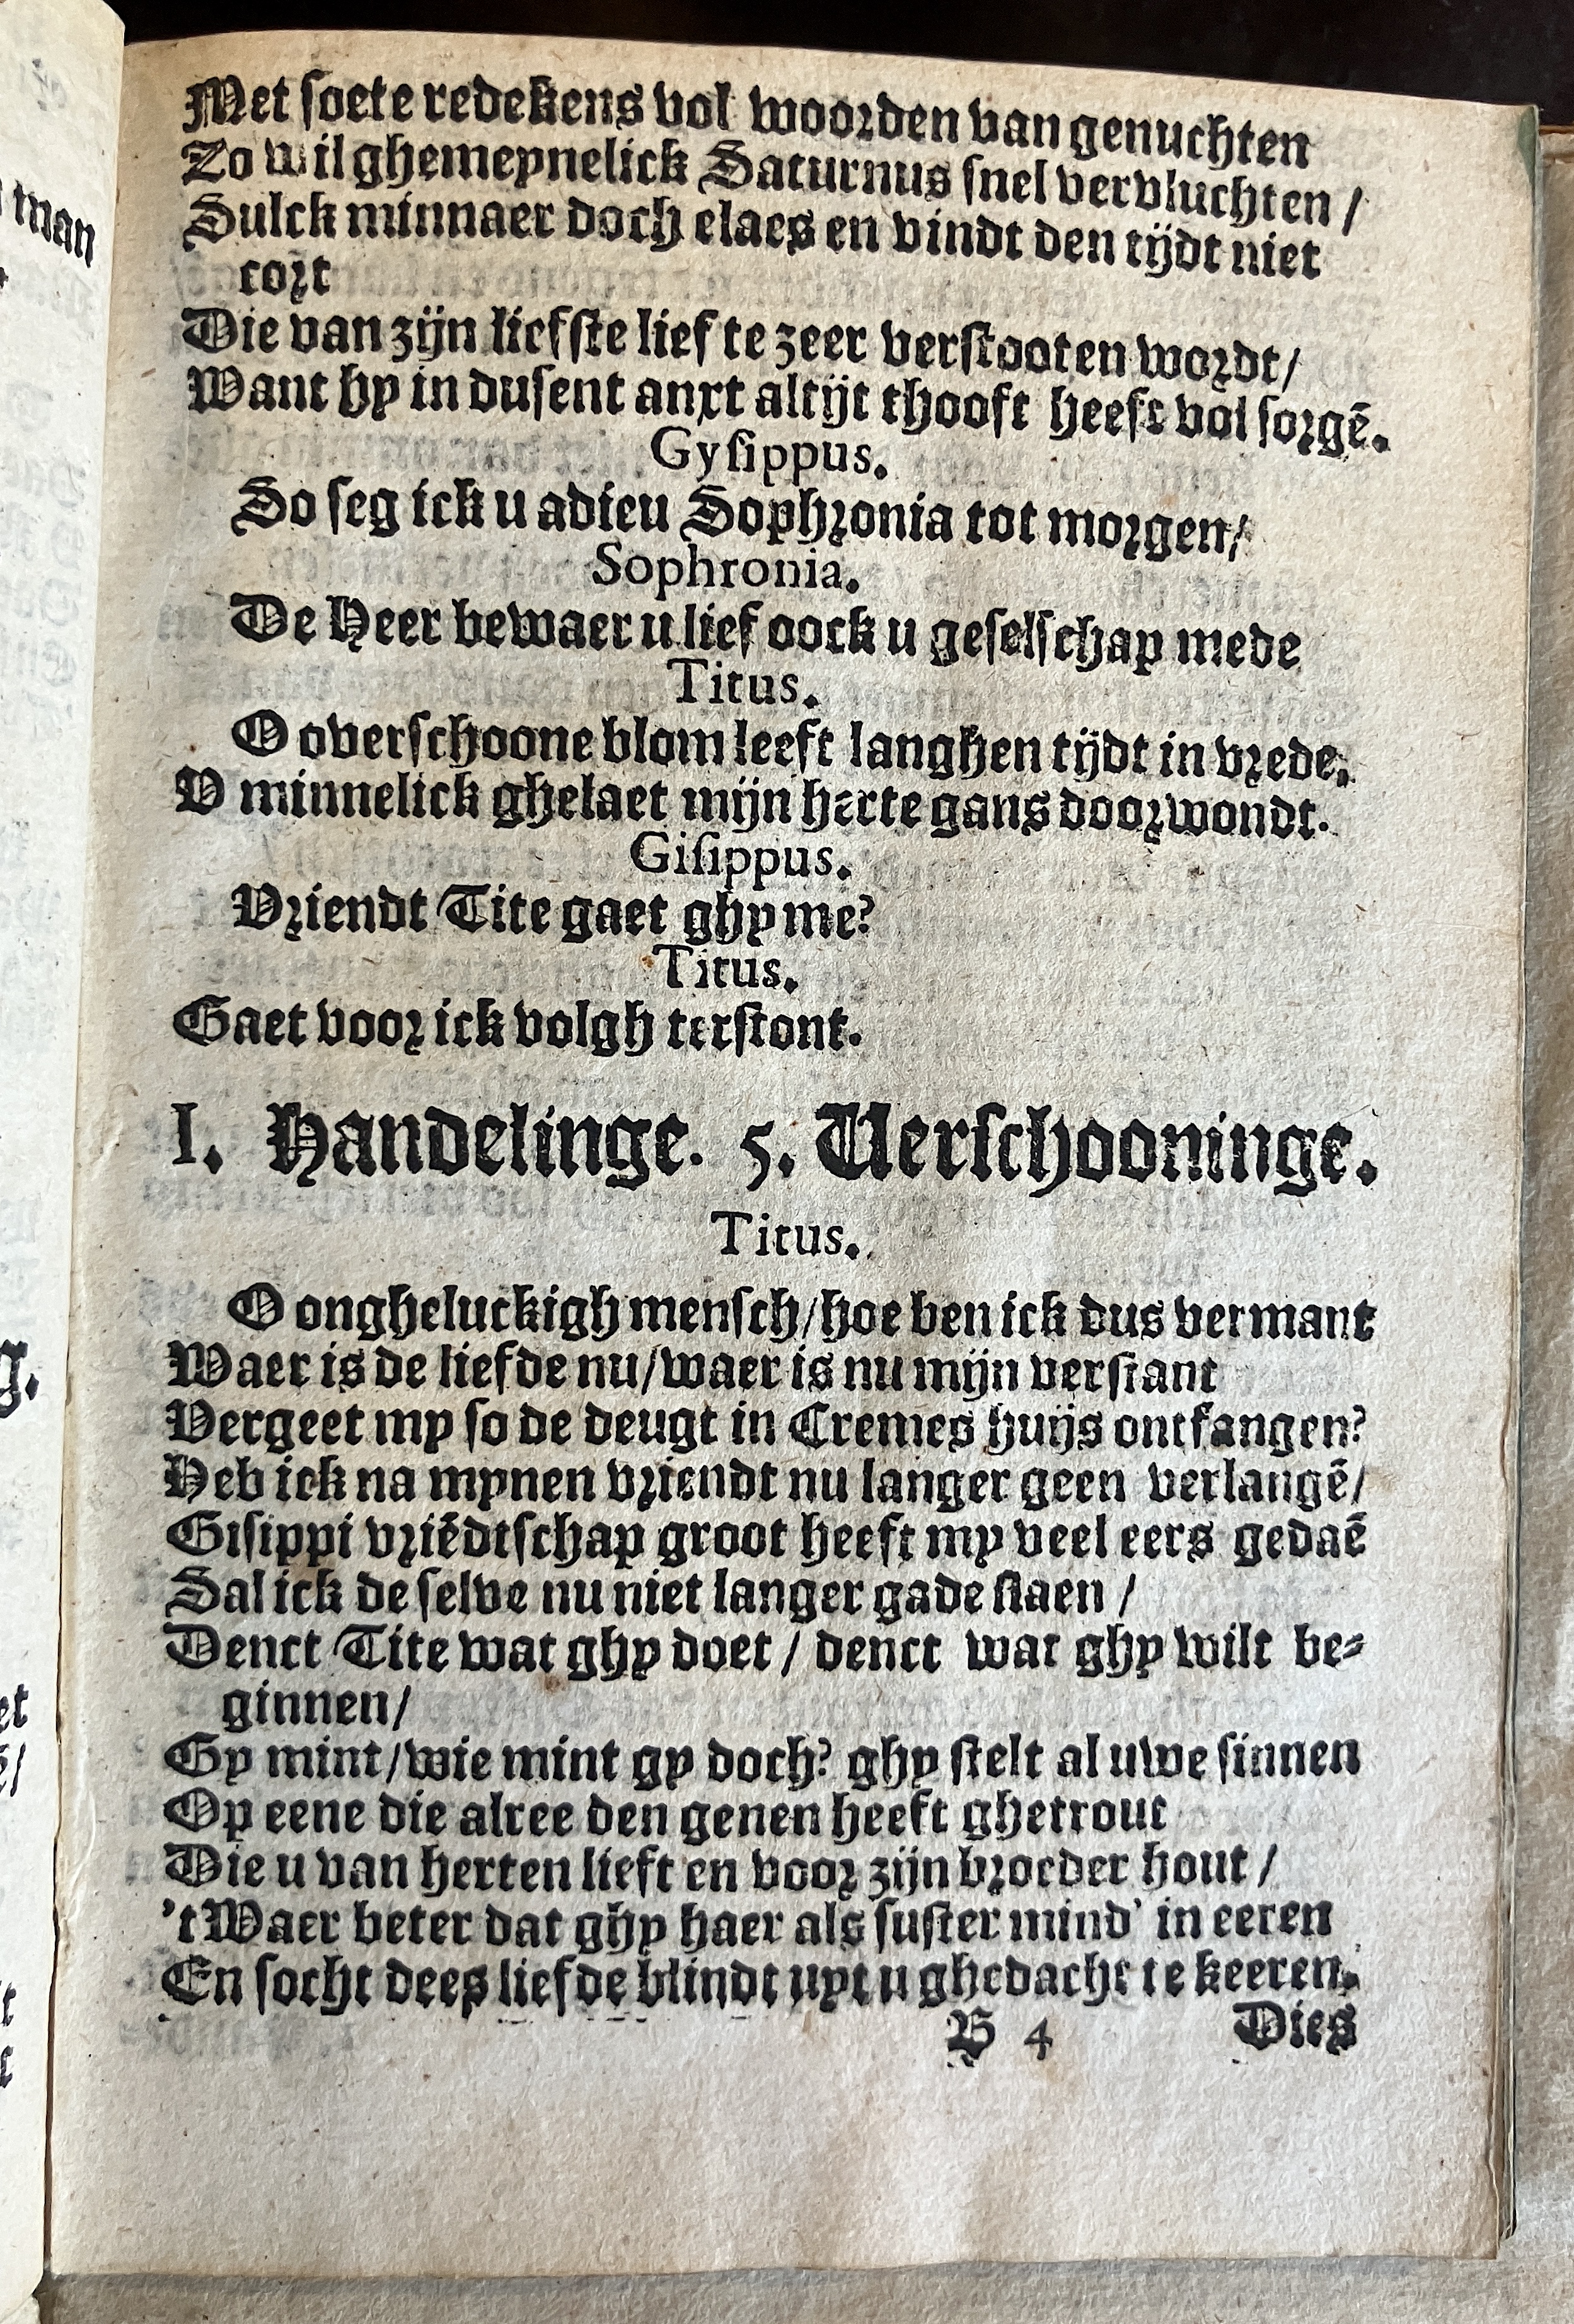 Met soete redekens vol woorden van genuchten
Zo wil ghemeynelick Saturnus snel vervluchten /
Sulck minnaer doch elaes en vindt den tijdt niet
cort
Die van zijn liefste lief te zeer verstooten wordt/
Want hy in dusent anxt altijt thooft heeft vol sorgē.
Gysippus.
So seg ick u adieu Sophronia tot morgen/
Sophronia.
De Heer bewaer u lief oock u geselschap mede
Titus.
O overschoone blom leeft langhen tijdt in vrede,
V minnelick ghelaet mijn herte gans doorwondt.
Gisippus.
Vriendt Tite gaet ghy me?
Titus.
Gaet voor ick volgh terstont.
I. Handelinge. 5. Verschooninge.
Titus.
O ongheluckigh mensch/hoe ben ick dus vermant
Waer is de liefde nu/waer is nu mijn verstant
Vergeet my so de deugt in Cremes huijs ontfangen?
Heb ick na mynen vriendt nu langer geen verlangē/
Gisippi vriēdtschap groot heeft my veel eers gedaē
Sal ick de selve nu niet langer gade slaen /
Denct Tite wat ghy doet / denct wat ghy wilt be-
ginnen/
Gy mint/wie mint gy doch? ghy stelt al uwe sinnen
Op eene die alree den genen heeft ghetrout
Die u van herten lieft en voor zijn broeder hout /
't Waer beter dat ghy haer als suster mind' in eeren
En socht dees liefde blindt uyt u ghedacht te keeren.
B 4 Dies